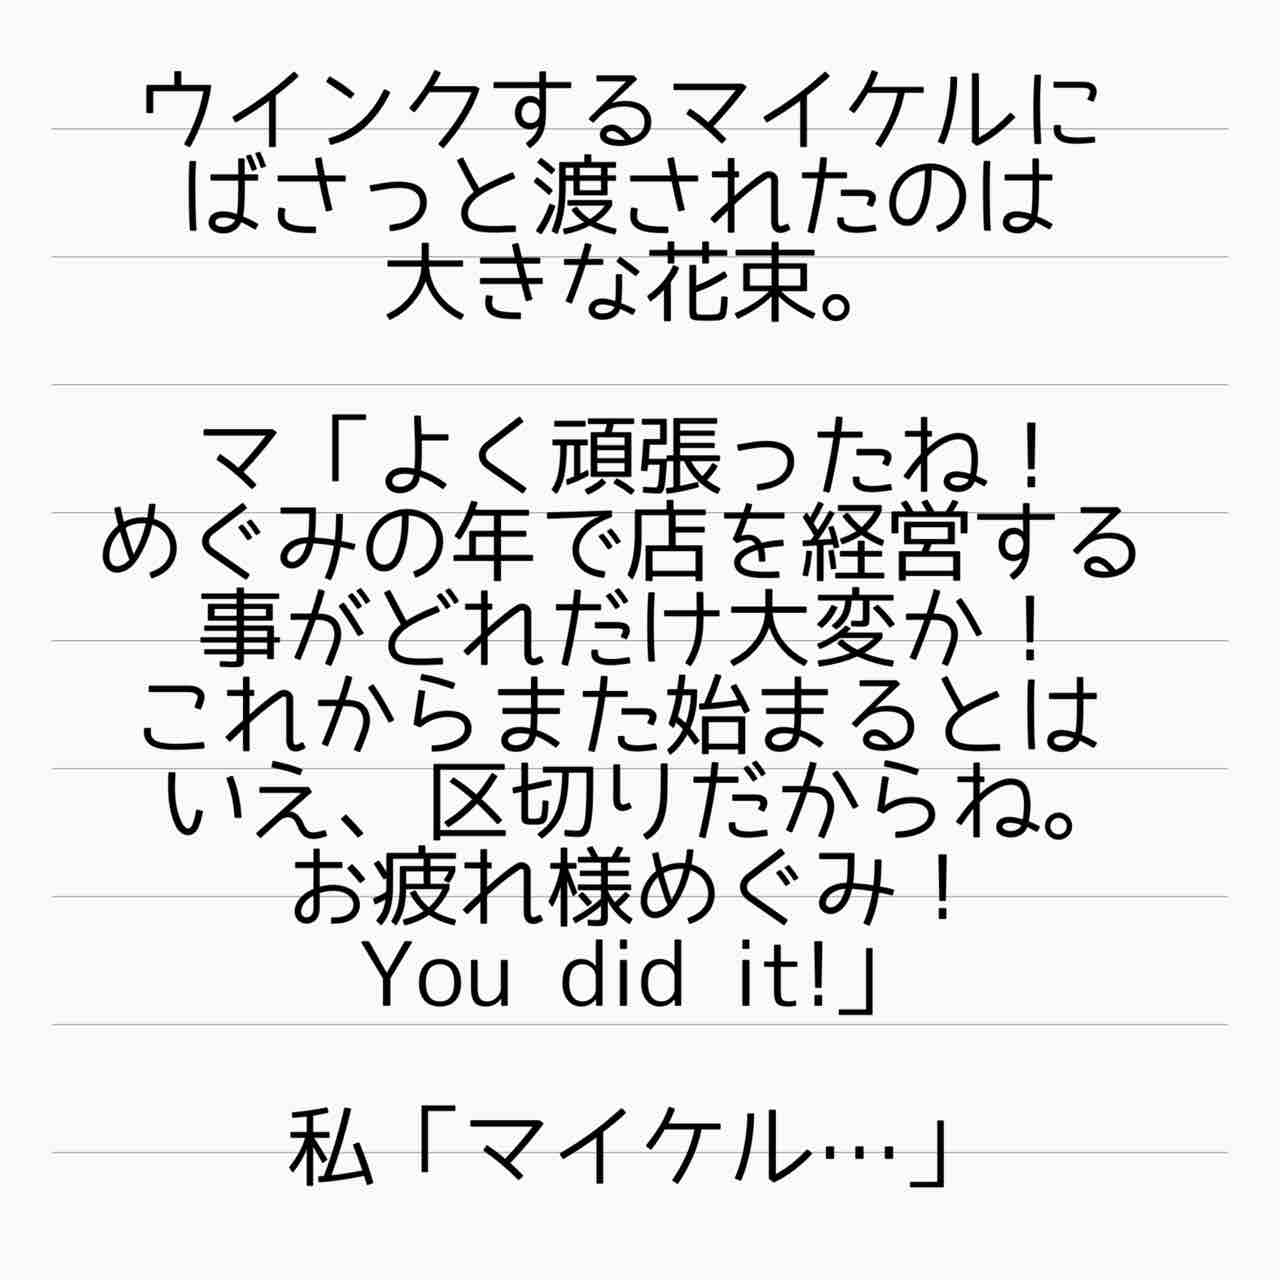 ウインクするマイケルに
ばさっと渡されたのは
大きな花束。
マ「よく頑張ったね！
めぐみの年で店を経営する
事がどれだけ大変か！
これからまた始まるとは
いえ、区切りだからね。
お疲れ様めぐみ！
You did it!」
私「マイケル…」